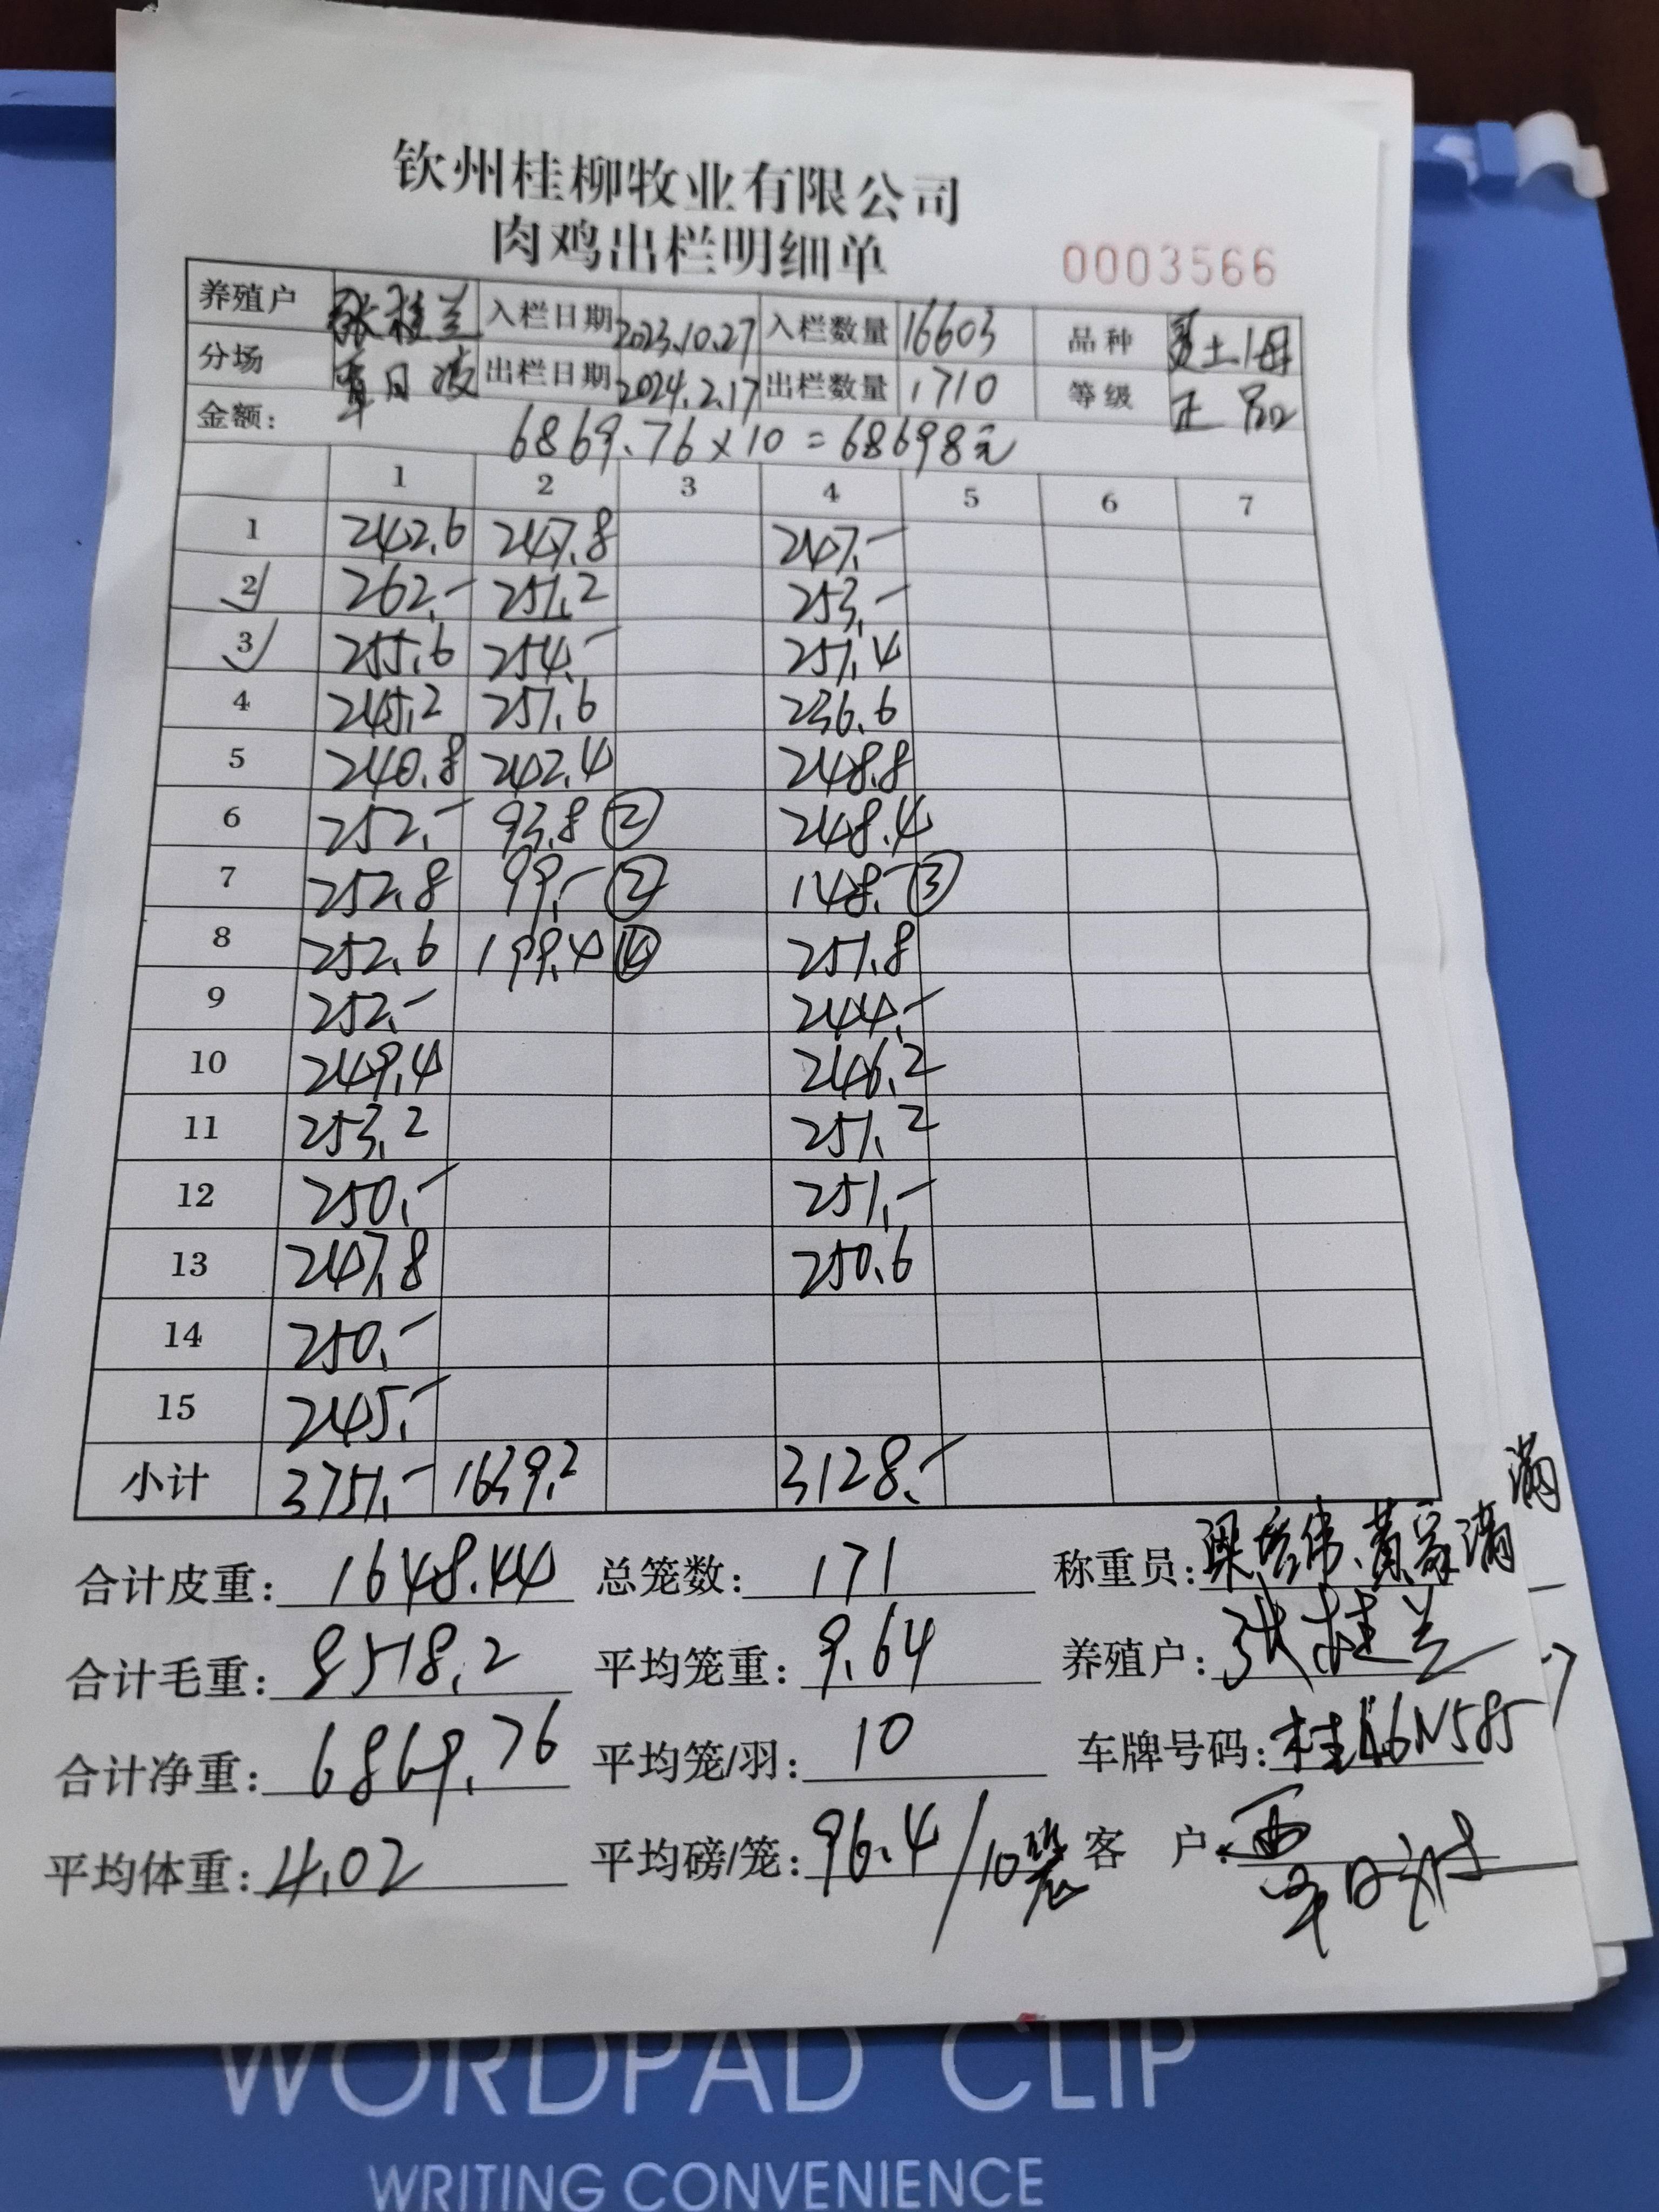 钦州桂柳牧业有限公司
肉鸡出栏明细单 0003566
养殖户 张桂兰 入栏日期 2023.10.27 入栏数量 16603 品种 土1母
分场 日 出栏日期 2024.2.17 出栏数量 1710 等级 正品
金额: 6869.76×10=68698元
1 2 3 4 5 6 7
1 242.6 247.8 247.-
2 262.- 251.2 253.-
3 255.6 254.- 251.4
4 245.2 251.6 236.6
5 240.8 242.4 248.8
6 252.- 93.8 ② 248.4
7 252.8 99.- ② 148.- ③
8 252.6 199.4 ④ 251.8
9 252.- 244.-
10 249.4 246.2
11 253.2 251.2
12 250.- 251.-
13 247.8 250.6
14 250.-
15 245.-
小计 3751.- 1639.2 3128.-
满
合计皮重: 1648.44 总笼数: 171 称重员: 梁 伟、黄家满
合计毛重: 8518.2 平均笼重: 9.64 养殖户: 张桂兰
合计净重: 6869.76 平均笼/羽: 10 车牌号码: 桂A6N585
平均体重: 4.02 平均磅/笼: 96.4/10装 客 户: 西
WORDPAD CLIP
WRITING CONVENIENCE